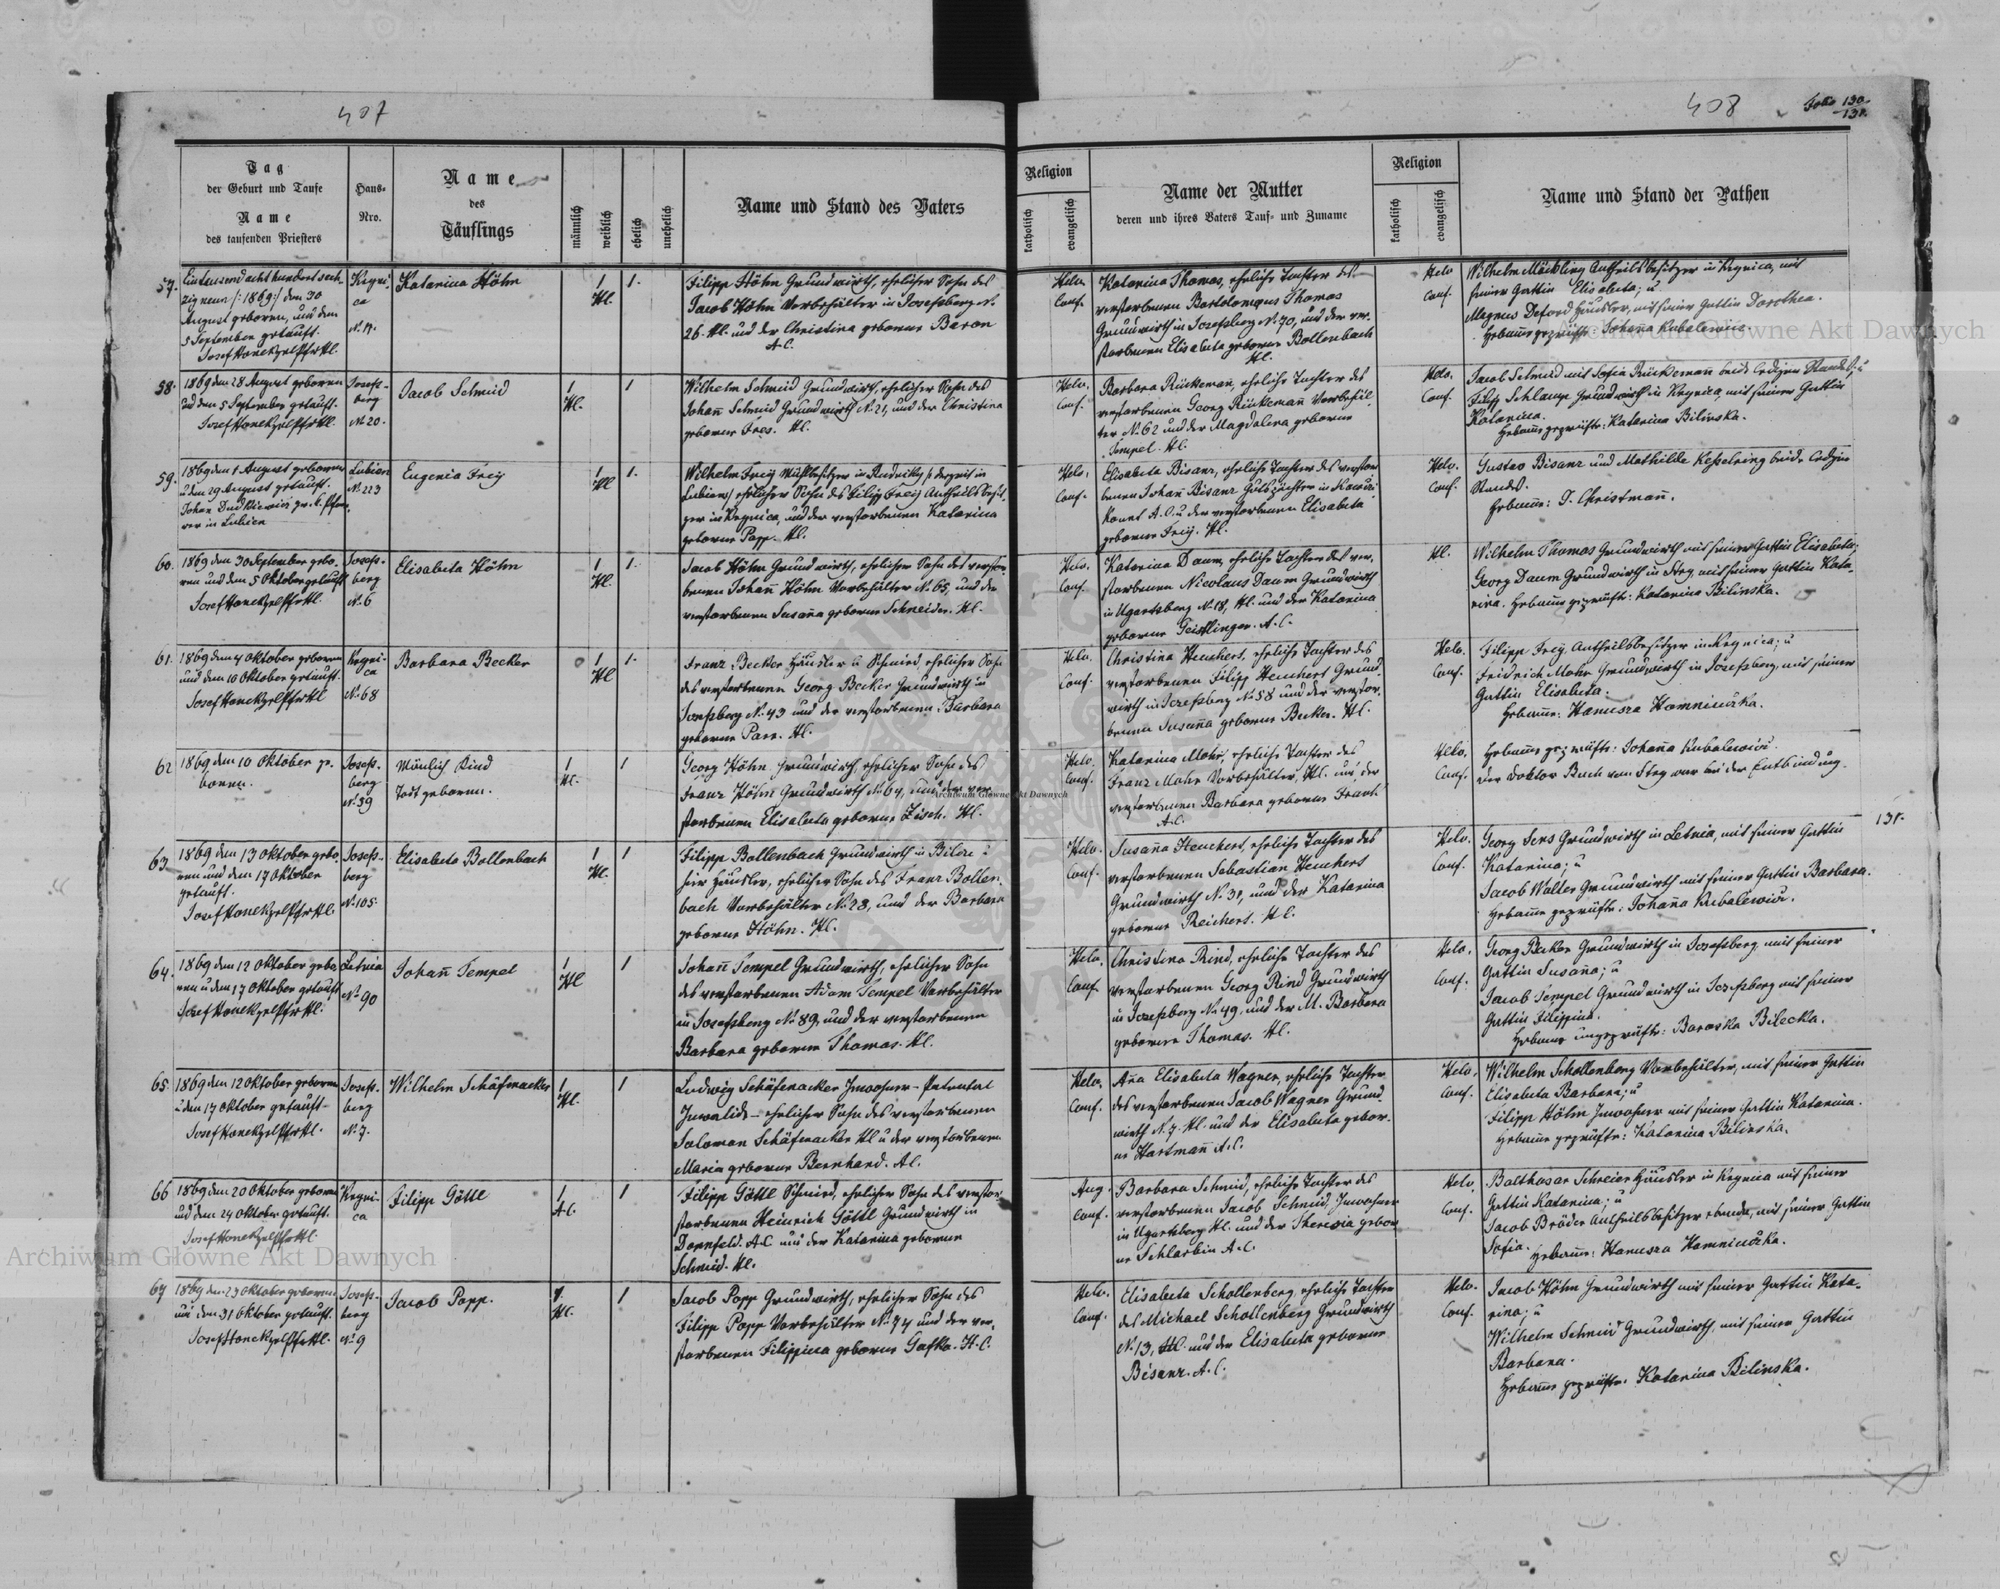 407
408
Folio 130.
131.
Tag
der Geburt und Taufe
Name
des taufenden Priesters
Haus-
Nro.
Name
des
Täuflings
männlich
weiblich
ehelich
unehelich
Name und Stand des Vaters
Religion
katholisch
evangelisch
Name der Mutter
deren und ihres Vaters Tauf- und Zuname
Religion
katholisch
evangelisch
Name und Stand der Pathen
57.
Eintausend acht hundert sech-
zig neun /:1869:/ den 30
August geboren, und den
5 September getauft.
Josef Honek
Kryni-
ca
Katarina Höhn
1
Hl.
1.
Filipp Höhn Grundwirth, ehelicher Sohn des
Jacob Höhn Vorbehälter in Josefsberg N.
26. Hl. und der Christina geborene Baron
A.C.
Helv.
Conf.
Katarina Thomas, eheliche Tochter des
verstorbenen Bartolomäus Thomas
Grundwirth in Josefsberg N. 70, und der ver-
storbenen Elisabeta geborene Bollenbach
Hl.
Helv
Conf.
Wilhelm Möckling Antheilsbesitzer in Krynica, mit
seiner Gattin Elisabeta; u
Magnus Deford Häusler, mit seiner Gattin Dorothea.
Hebame geprüfte: Johaña Kubalewicz.
58.
1869 den 28 August geboren
und den 5 September getauft.
Josef Honek
Josefs-
berg
N. 20.
Jacob Schmid
1
Hl.
1
Wilhelm Schmid Grundwirth, ehelicher Sohn des
Johañ Schmid Grundwirth N. 21, und der Christina
geborene Hl.
Helv.
Conf.
Barbara Rückemañ, eheliche Tochter des
verstorbenen Georg Rückemañ Vorbehäl-
ter N. 62 und der Magdalena geborene
Tempel. Hl.
Helv.
Conf.
Jacob Schmid mit Sofia Rückemañ beide ledigen Standes; u
Filip Schlamp Grundwirth in Krynica, mit seiner Gattin
Katarina.
Hebame geprüfte: Katarina Bilinska.
59.
1869 den 1 August geboren
u den 29 August getauft.
Johan
rer in Lubien
Lubien
N. 223
Eugenia Frey
1
Hl
1.
Wilhelm Frey Mühlbesitzer in
Lubien/ ehelicher Sohn des Filipp Frey Antheilsbesit-
zer in Krynica, und der verstorbenen Katarina
geborene Popp. Hl.
Helv.
Conf.
Elisabeta Bisanz, eheliche Tochter des verstor-
benen Johañ Bisanz Gutspächter in
A.C. u der verstorbenen Elisabeta
geborene Frey. Hl.
Helv.
Conf.
Gustav Bisanz und Mathilde Kesselring beide ledigen
Standes.
Hebame: J. Christmañ.
60.
1869 den 30 September gebo-
ren und den 5 Oktober getauft
Josef Honek
Josefs-
berg
N. 6
Elisabeta Höhn
1
Hl.
1.
Jacob Höhn Grundwirth, ehelicher Sohn des verstor-
benen Johañ Höhn Vorbehälter N. 65, und der
verstorbenen Susaña geborene Schneider. Hl.
Helv.
Conf.
Katarina Daum, eheliche Tochter des ver-
storbenen Nicolaus Daum Grundwirth
in Ugartsberg N. 18, Hl. und der Katarina
geborene Geistlinger. A.C.
Hl.
Wilhelm Thomas Grundwirth mit seiner Gattin Elisabeta;
Georg Daum Grundwirth in Steg mit seiner Gattin Kata-
rina. Hebame geprüfte: Katarina Bilinska.
61.
1869 den 4 Oktober geboren
und den 10 Oktober getauft.
Josef Honek
Kryni-
ca
N. 68
Barbara Becker
1
Hl
1.
Franz Becker Häusler u Schmied, ehelicher Sohn
des verstorbenen Georg Becker Grundwirth in
Josefsberg N. 43 und der verstorbenen Barbara
geborene Parr. Hl.
Helv.
Conf.
Christina Heuchert, eheliche Tochter des
verstorbenen Filipp Heuchert Grund-
wirth in Josefsberg N. 58 und der verstor-
benen Susaña geborene Becker. Hl.
Helv.
Conf.
Filipp Frey Antheilsbesitzer in Krynica; u
Fridrich Mohr Grundwirth in Josefsberg, mit seiner
Gattin Elisabeta.
Hebame: Hanusza Kamniuczka.
62
1869 den 10 Oktober ge-
boren.
Josefs-
berg
N. 39
Mänlich Kind
Todt geboren.
1
Hl.
1
Georg Höhn Grundwirth, ehelicher Sohn des
Franz Höhn Grundwirth N. 64, und der ver-
storbenen Elisabeta geborene Hl.
Helv.
Conf.
Katarina Mohr, eheliche Tochter des
Franz Mohr Vorbehälter, Hl. und der
verstorbenen Barbara geborene
A.C.
Helv.
Conf.
Hebame geprüfte: Johaña Kubalewicz.
Der Doktor Buch von Steg war bei der Entbindung.
131.
63
1869 den 13 Oktober gebo-
ren und den 17 Oktober
getauft.
Josef Honek
Josefs-
berg
N. 105.
Elisabeta Bollenbach
1
Hl.
1
Filipp Bollenbach Grundwirth in
hier Häusler, ehelicher Sohn des Franz Bollen-
bach Vorbehälter N. 28, und der Barbara
geborene Höhn. Hl.
Helv.
Conf.
Susaña Heuchert, eheliche Tochter des
verstorbenen Sebastian Heuchert
Grundwirth N. 31, und der Katarina
geborene Reichert. Hl.
Helv.
Conf.
Georg Sers Grundwirth in Letnia, mit seiner Gattin
Katarina; u
Jacob Walter Grundwirth mit seiner Gattin Barbara.
Hebame geprüfte: Johaña Kubalewicz.
64.
1869 den 12 Oktober gebo-
ren u den 17 Oktober getauft
Josef Honek
Letnia
N. 90
Johañ Tempel
1
Hl
1
Johañ Tempel Grundwirth, ehelicher Sohn
des verstorbenen Adam Tempel Vorbehälter
in Josefsberg N. 89, und der verstorbenen
Barbara geborene Thomas. Hl.
Helv.
Conf.
Christina Rind, eheliche Tochter des
verstorbenen Georg Rind Grundwirth
in Josefsberg N. 49, und der M. Barbara
geborene Thomas. Hl.
Helv.
Conf.
Georg Becker Grundwirth in Josefsberg mit seiner
Gattin Susaña; u
Jacob Tempel Grundwirth in Josefsberg mit seiner
Gattin Filippina.
Hebame ungeprüfte: Baraska Bilecka.
65
1869 den 12 Oktober geboren
u den 17 Oktober getauft
Josef Honek
Josefs-
berg
N. 7.
Wilhelm Schäfnacker
1
Hl.
1
Ludwig Schäfenacker Inwohner - Patental
Invalide - ehelicher Sohn des verstorbenen
Solomon Schäfnacker Hl u der verstorbenen
Maria geborene Bernhard. A.C.
Helv.
Conf.
Aña Elisabeta Wagner, eheliche Tochter
des verstorbenen Jacob Wagner Grund-
wirth N. 7. Hl. und der Elisabeta gebor-
ne Hartmañ A.C.
Helv.
Conf.
Wilhelm Schollenberg Vorbehälter, mit seiner Gattin
Elisabeta Barbara; u
Filipp Höhn Inwohner mit seiner Gattin Katarina.
Hebame geprüfte: Katarina Bilinska.
66
1869 den 20 Oktober geboren
und den 24 Oktober getauft.
Josef Honek
Kryni-
ca
Filipp Göttl
1
A.C.
1
Filipp Göttl Schmied, ehelicher Sohn des verstor-
storbenen Heinrich Göttl Grundwirth in
Dornfeld. A.C. und der Katarina geborene
Schmid. Hl.
Aug.
Conf.
Barbara Schmid, eheliche Tochter des
verstorbenen Jacob Schmid, Inwohner
in Ugartsberg Hl. und der Theresia gebor-
ne Schlarbin A.C.
Helv.
Conf.
Balthasar Schreier Häusler in Krynica mit seiner
Gattin Katarina; u
Jacob Bräder Antheilsbesitzer ebenda, mit seiner Gattin
Sofia.
Hebame: Hanusza Kamniuczka.
67
1869 den 23 Oktober geboren
und den 31 Oktober getauft.
Josef Honek
Josefs-
berg
N. 9
Jacob Popp.
1.
Hl.
1
Jacob Popp Grundwirth, ehelicher Sohn des
Filipp Popp Vorbehälter N. 74 und der ver-
storbenen Filippina geborene Gafka. H.C.
Helv.
Conf.
Elisabeta Schollenberg, eheliche Tochter
des Michael Schollenberg Grundwirth
N. 13, Hl. und der Elisabeta geborene
Bisanz. A.C.
Helv.
Conf.
Jacob Höhn Grundwirth mit seiner Gattin Kata-
rina; u
Wilhelm Schmid Grundwirth, mit seiner Gattin
Barbara.
Hebame geprüfte: Katarina Bilinska.
Archiwum Główne Akt Dawnych
Archiwum Główne Akt Dawnych
Archiwum Główne Akt Dawnych